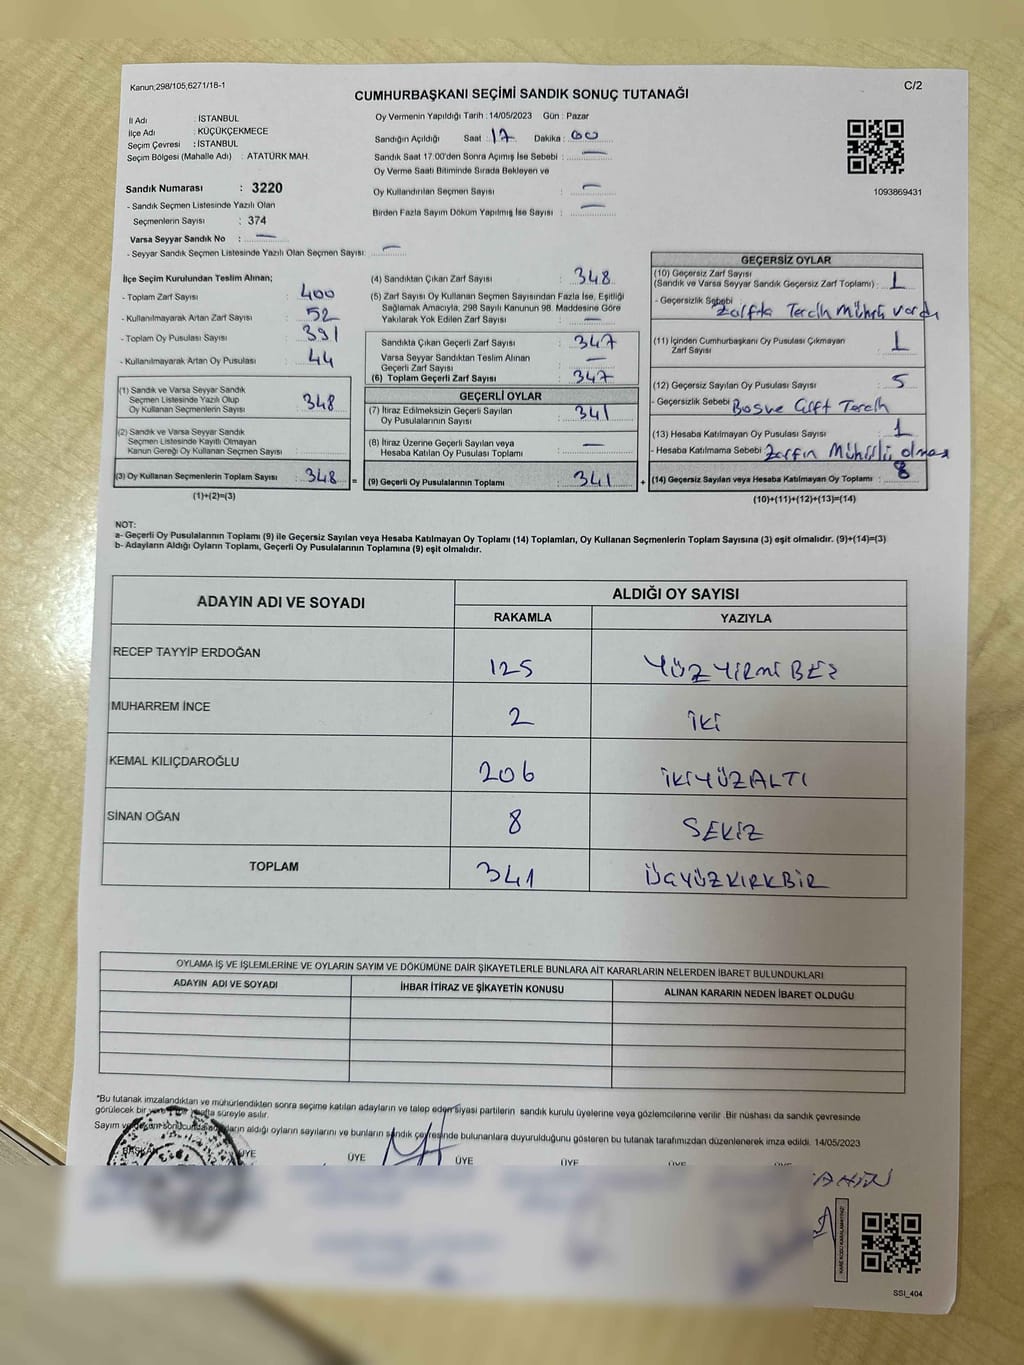 Kanun;298/105,6271/18-1
C/2
CUMHURBAŞKANI SEÇİMİ SANDIK SONUÇ TUTANAĞI
İl Adı : İSTANBUL
İlçe Adı : KÜÇÜKÇEKMECE
Seçim Çevresi : İSTANBUL
Seçim Bölgesi (Mahalle Adı) : ATATÜRK MAH.
Sandık Numarası : 3220
- Sandık Seçmen Listesinde Yazılı Olan
Seçmenlerin Sayısı : 374
Varsa Seyyar Sandık No : —
- Seyyar Sandık Seçmen Listesinde Yazılı Olan Seçmen Sayısı: —
Oy Vermenin Yapıldığı Tarih : 14/05/2023 Gün : Pazar
Sandığın Açıldığı Saat : 17 Dakika : 00
Sandık Saat 17:00'den Sonra Açımış İse Sebebi : —
Oy Verme Saati Bitiminde Sırada Bekleyen ve
Oy Kullandırılan Seçmen Sayısı : —
Birden Fazla Sayım Döküm Yapılmış İse Sayısı : —
1093869431
İlçe Seçim Kurulundan Teslim Alınan;
- Toplam Zarf Sayısı : 400
- Kullanılmayarak Artan Zarf Sayısı : 52
- Toplam Oy Pusulası Sayısı : 391
- Kullanılmayarak Artan Oy Pusulası : 44
(1) Sandık ve Varsa Seyyar Sandık
Seçmen Listesinde Yazılı Olup
Oy Kullanan Seçmenlerin Sayısı : 348
(2) Sandık ve Varsa Seyyar Sandık
Seçmen Listesinde Kayıtlı Olmayan
Kanun Gereği Oy Kullanan Seçmen Sayısı :
(3) Oy Kullanan Seçmenlerin Toplam Sayısı : 348 =
(1)+(2)=(3)
(4) Sandıktan Çıkan Zarf Sayısı : 348
(5) Zarf Sayısı Oy Kullanan Seçmen Sayısından Fazla İse, Eşitliği
Sağlamak Amacıyla, 298 Sayılı Kanunun 98. Maddesine Göre
Yakılarak Yok Edilen Zarf Sayısı : —
Sandıkta Çıkan Geçerli Zarf Sayısı : 347
Varsa Seyyar Sandıktan Teslim Alınan
Geçerli Zarf Sayısı : —
(6) Toplam Geçerli Zarf Sayısı : 347
GEÇERLİ OYLAR
(7) İtiraz Edilmeksizin Geçerli Sayılan
Oy Pusulalarının Sayısı : 341
(8) İtiraz Üzerine Geçerli Sayılan veya
Hesaba Katılan Oy Pusulası Toplamı : —
(9) Geçerli Oy Pusulalarının Toplamı : 341 +
GEÇERSİZ OYLAR
(10) Geçersiz Zarf Sayısı
(Sandık ve Varsa Seyyar Sandık Geçersiz Zarf Toplamı) : 1
- Geçersizlik Sebebi : Zarfta Tercih Mührü vardı
(11) İçinden Cumhurbaşkanı Oy Pusulası Çıkmayan
Zarf Sayısı : 1
(12) Geçersiz Sayılan Oy Pusulası Sayısı : 5
- Geçersizlik Sebebi Boş ve Çift Tercih
(13) Hesaba Katılmayan Oy Pusulası Sayısı : 1
- Hesaba Katılmama Sebebi Zarfın Mühürlü olması
(14) Geçersiz Sayılan veya Hesaba Katılmayan Oy Toplamı : 8
(10)+(11)+(12)+(13)=(14)
NOT:
a- Geçerli Oy Pusulalarının Toplamı (9) ile Geçersiz Sayılan veya Hesaba Katılmayan Oy Toplamı (14) Toplamları, Oy Kullanan Seçmenlerin Toplam Sayısına (3) eşit olmalıdır. (9)+(14)=(3)
b- Adayların Aldığı Oyların Toplamı, Geçerli Oy Pusulalarının Toplamına (9) eşit olmalıdır.
ADAYIN ADI VE SOYADI
ALDIĞI OY SAYISI
RAKAMLA YAZIYLA
RECEP TAYYİP ERDOĞAN 125 YÜZYİRMİBEŞ
MUHARREM İNCE 2 İKİ
KEMAL KILIÇDAROĞLU 206 İKİYÜZALTI
SİNAN OĞAN 8 SEKİZ
TOPLAM 341 ÜÇYÜZKIRKBİR
OYLAMA İŞ VE İŞLEMLERİNE VE OYLARIN SAYIM VE DÖKÜMÜNE DAİR ŞİKAYETLERLE BUNLARA AİT KARARLARIN NELERDEN İBARET BULUNDUKLARI
ADAYIN ADI VE SOYADI İHBAR İTİRAZ VE ŞİKAYETİN KONUSU ALINAN KARARIN NEDEN İBARET OLDUĞU
*Bu tutanak imzalandıktan ve mühürlendikten sonra seçime katılan adayların ve talep eden siyasi partilerin sandık kurulu üyelerine veya gözlemcilerine verilir .Bir nüshası da sandık çevresinde
görülecek bir yere bir hafta süreyle asılır.
Sayım ve döküm sonucunda adayların aldığı oyların sayılarını ve bunların sandık çevresinde bulunanlara duyurulduğunu gösteren bu tutanak tarafımızdan düzenlenerek imza edildi. 14/05/2023
BAŞKAN ÜYE ÜYE ÜYE ÜYE ÜYE
SSI_404